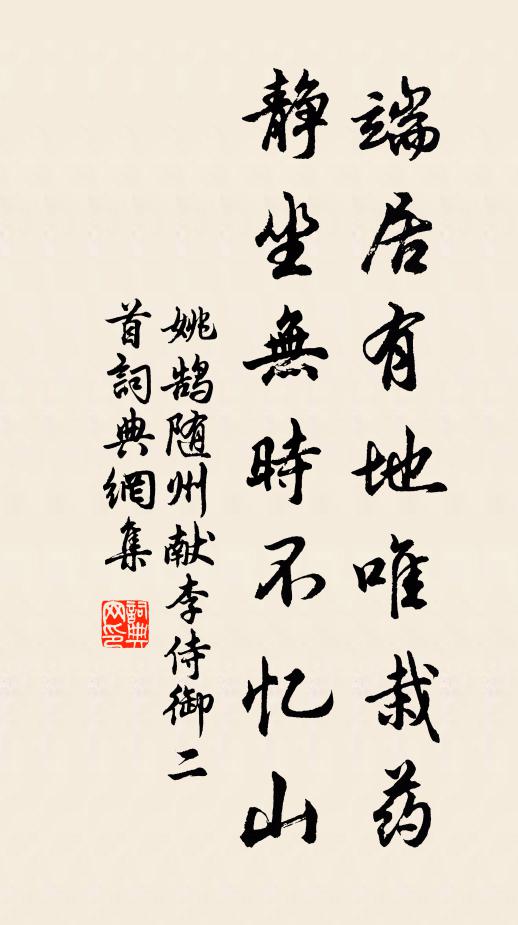 端居有地唯栽药
静坐無時不忆山
姚鹄随州献李侍御二
首詞典網集
詞典
网印